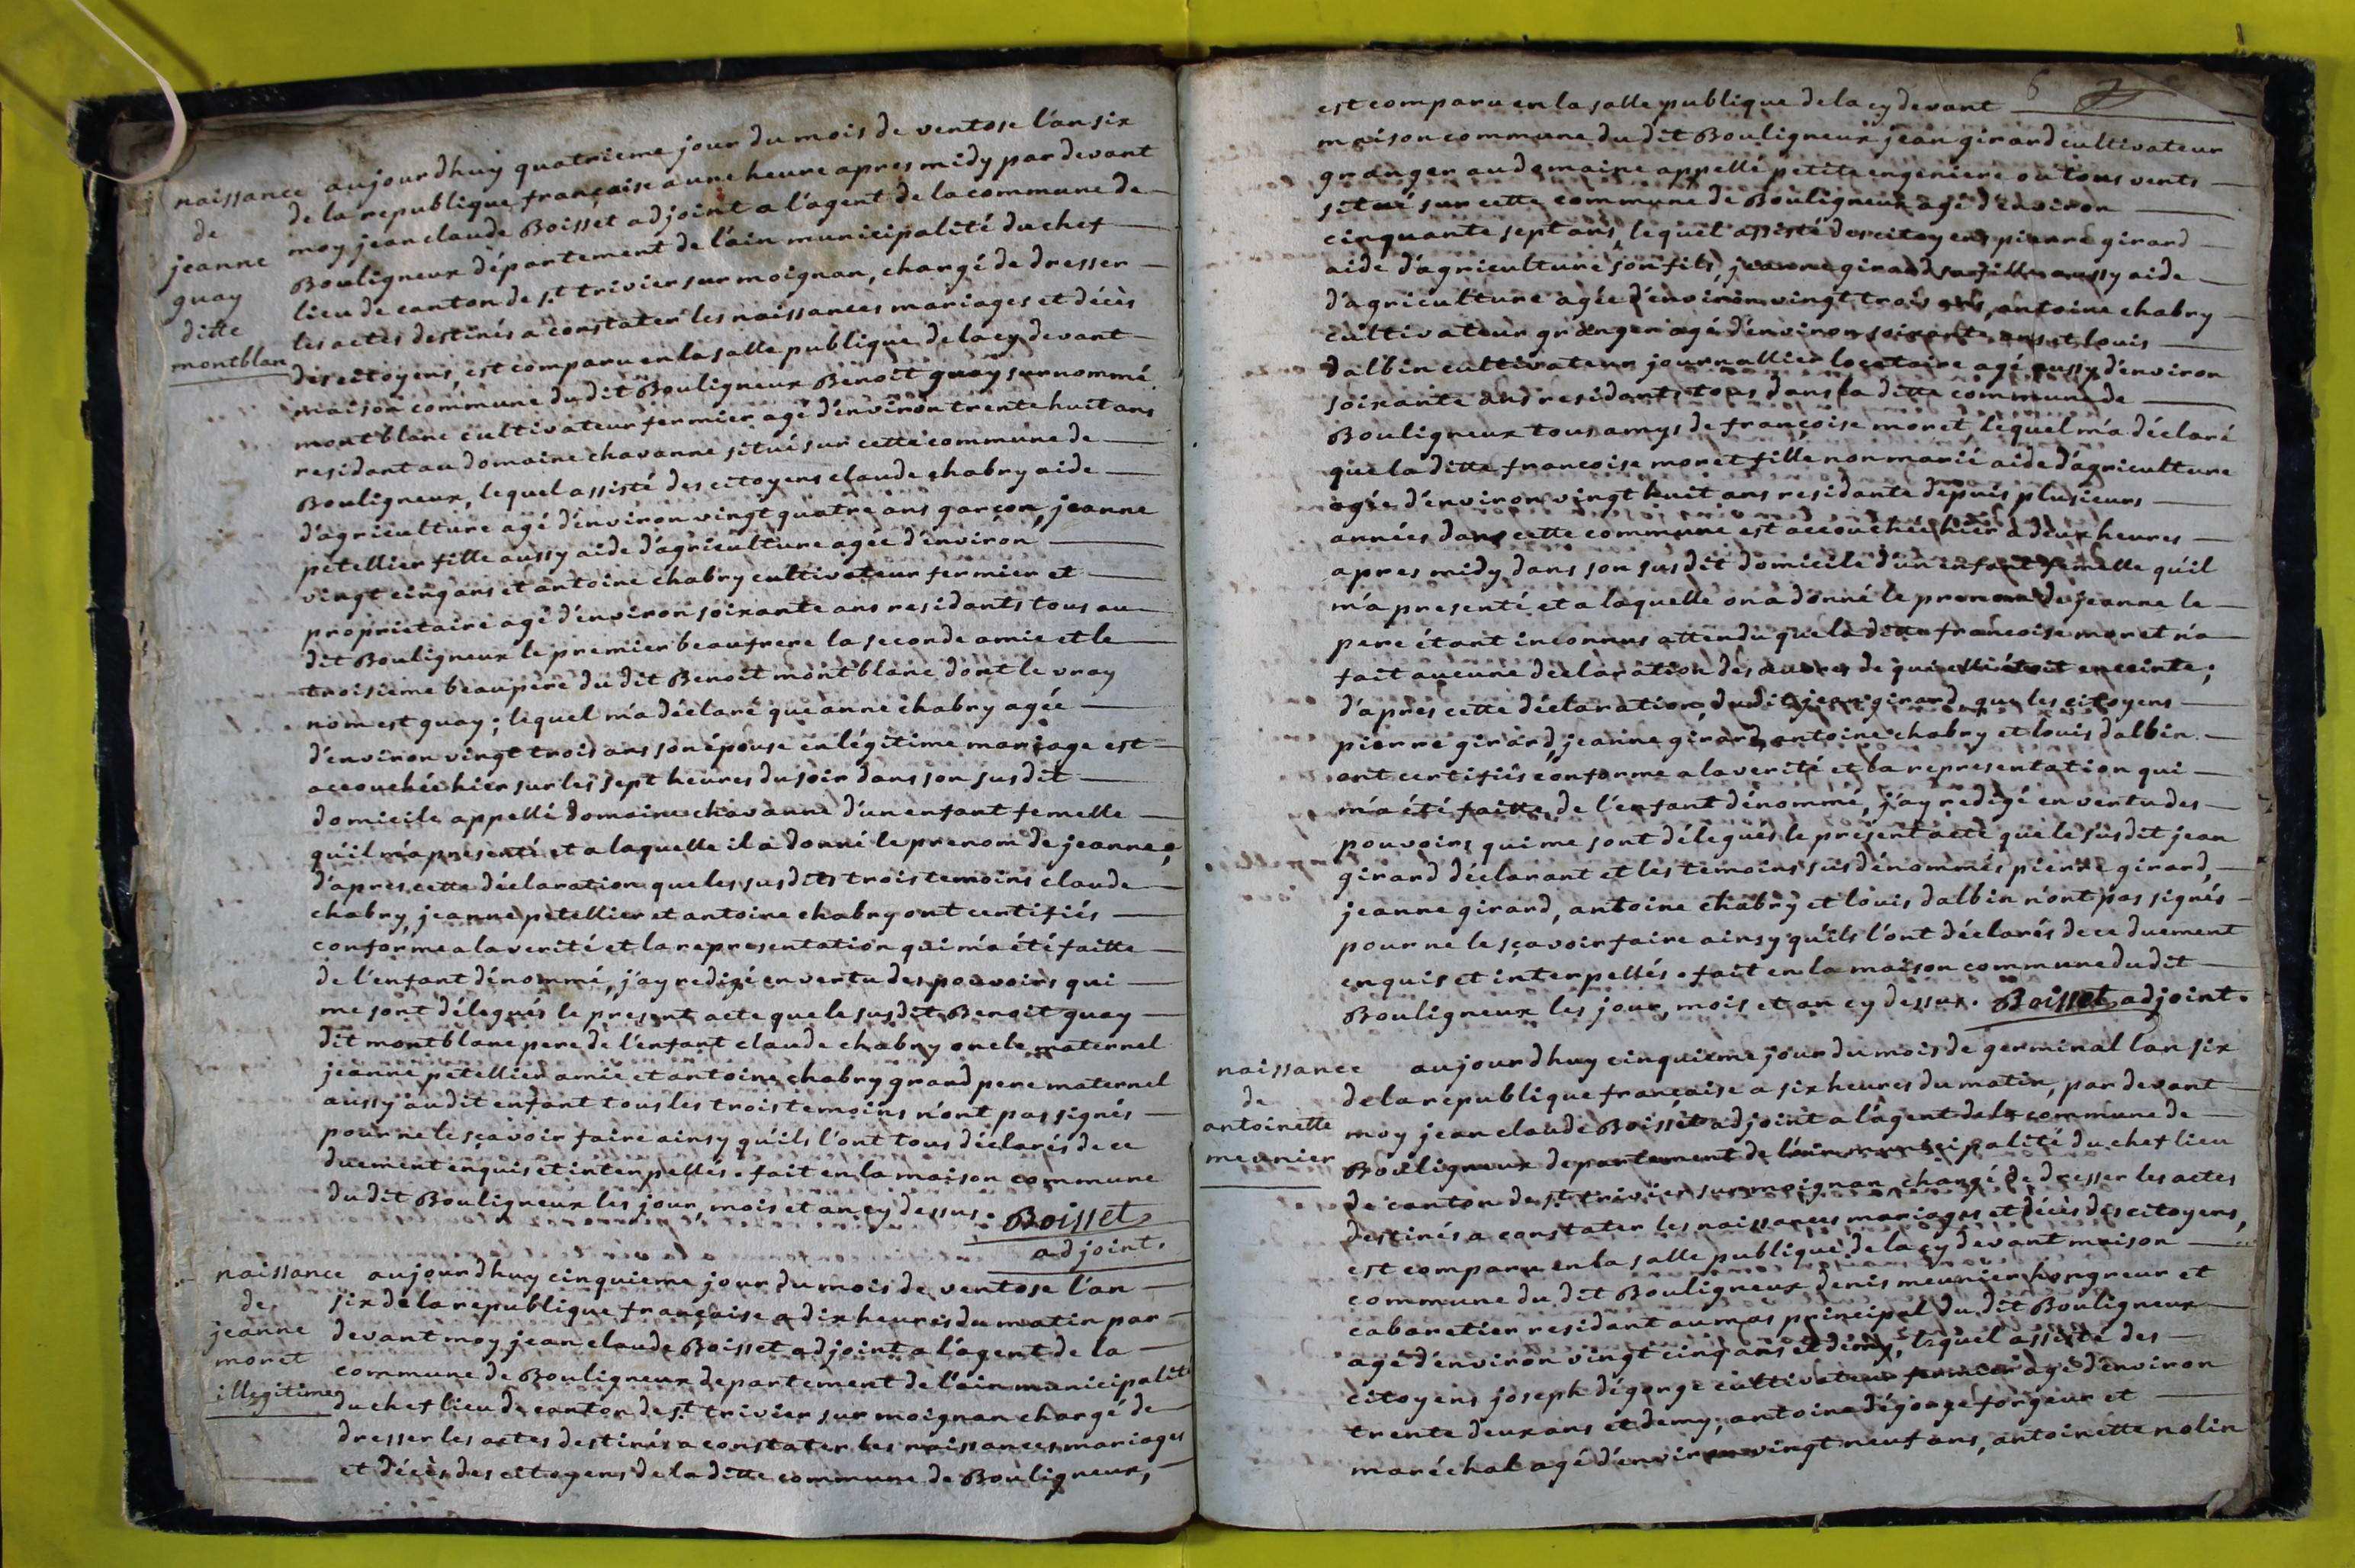 naissance
de
jeanne
guay
ditte
montblan
aujourdhuy quatrieme jour du mois de ventose l'an six
de la republique française a une heure apres midy par devant
moy jean claude Boisset adjoint a l'agent de la commune de
Bouligneux département de l'ain municipalité du chef
lieu de canton de s.t trivier sur moignan, chargé de dresser
les actes destinés a constater les naissances mariages et décès
des citoyens, est comparu en la salle publique de la cy devant
maison commune du dit Bouligneux Benoit guay surnommé
montblanc cultivateur fermier agé d'environ trente huit ans
residant au domaine chavanne situé sur cette commune de
Bouligneux, lequel assisté des citoyens claude chabry aide
d'agriculture agé d'environ vingt quatre ans garçon, jeanne
petellier fille aussy aide d'agriculture agée d'environ
vingt cinq ans et antoine chabry cultivateur fermier et
proprietaire agé d'environ soixante ans residants tous au
dit Bouligneux le premier beaufrere la seconde amie et le
troisieme beaupere du dit Benoit montblanc dont le vray
nom est guay; lequel m'a déclaré que anne chabry agée
d'environ vingt trois ans son épouse en légitime mariage est
accouchée hier sur les sept heures du soir dans son susdit
domicile appellé domaine chavanne d'un enfant femelle
qu'il m'a presenté et a laquelle il a donné le prenom de jeanne;
d'apres cette déclaration que les susdits trois temoins claude
chabry, jeanne petellier et antoine chabry ont certifiés
conforme a la verité et la representation qui m'a été faitte
de l'enfant dénommé, j'ay redigé en vertu des pouvoirs qui
me sont délegués le present acte que le susdit Benoit guay
dit montblanc pere de l'enfant claude chabry oncle maternel
jeanne petellier amie et antoine chabry grand pere maternel
aussy audit enfant tous les trois temoins n'ont pas signés
pour ne le sçavoir faire ainsy qu'ils l'ont tous déclarés de ce
duement enquis et interpellés. fait en la maison commune
du dit Bouligneux les jour, mois et an cy dessus. Boisset
adjoint.
naissance
de
jeanne
moret
illegitime
aujourdhuy cinquieme jour du mois de ventose l'an
six de la republique française a dix heures du matin par
devant moy jean claude Boisset adjoint a l'agent de la
commune de Bouligneux departement de l'ain municipalité
du chef lieu de canton de s.t trivier sur moignan chargé de
dresser les actes destinés a constater les naissances mariages
et décès des citoyens de la ditte commune de Bouligneux,
6
est comparu en la salle publique de la cy devant
maison commune du dit Bouligneux jean girard cultivateur
granger au domaine appellé petite ingeniere ou tous vents
situé sur cette commune de Bouligneux agé d'environ
cinquante sept ans, lequel assisté des citoyens pierre girard
aide d'agriculture son fils, jeanne girard sa fille aussy aide
d'agriculture agée d'environ vingt trois ans, antoine chabry
cultivateur granger agé d'environ soixante ans et louis
dalbin cultivateur journallier locataire agé aussy d'environ
soixante ans residants tous dans la ditte commune de
Bouligneux tous amys de françoise moret, lequel m'a déclaré
que la ditte francoise moret fille non marié aide d'agriculture
agée d'environ vingt huit ans residante depuis plusieurs
années dans cette commune est accouchée hier a deux heures
apres midy dans son susdit domicile d'un enfant femelle qu'il
m'a presenté et a laquelle on a donné le prenom de jeanne le
pere étant inconnus attendu que la ditte francoise moret n'a
fait aucune déclaration des œuvres de qui elle étoit enceinte;
d'apres cette déclaration, du dit jean girard que les citoyens
pierre girard, jeanne girard, antoine chabry et louis dalbin
ont certifiés conforme a la verité et la representation qui
m'a été faitte de l'enfant dénommé, j'ay redigé en vertu des
pouvoirs qui me sont délegués le present acte que le susdit jean
girard déclarant et les temoins susdénommés pierre girard,
jeanne girard, antoine chabry et louis dalbin n'ont pas signés
pour ne le sçavoir faire ainsy qu'ils l'ont déclarés de ce duement
enquis et interpellés. fait en la maison commune du dit
Bouligneux les jour, mois et an cy dessus. Boisset adjoint.
naissance
de
antoinette
meunier
aujourdhuy cinquieme jour du mois de germinal l'an six
de la republique française a six heures du matin, par devant
moy jean claude Boisset adjoint a l'agent de la commune de
Bouligneux departement de l'ain municipalité du chef lieu
de canton de s.t trivier sur moignan chargé de dresser les actes
destinés a constater les naissances mariages et décès des citoyens,
est comparu en la salle publique de la cy devant maison
commune du dit Bouligneux denis meunier hongreur et
cabaretier residant au mas principal du dit Bouligneux
agé d'environ vingt cinq ans et demy, lequel assisté des
citoyens joseph dégorge cultivateur fermier agé d'environ
trente deux ans et demy, antoine dégorge forgeur et
maréchal agé d'environ vingt neuf ans, antoinette nolin